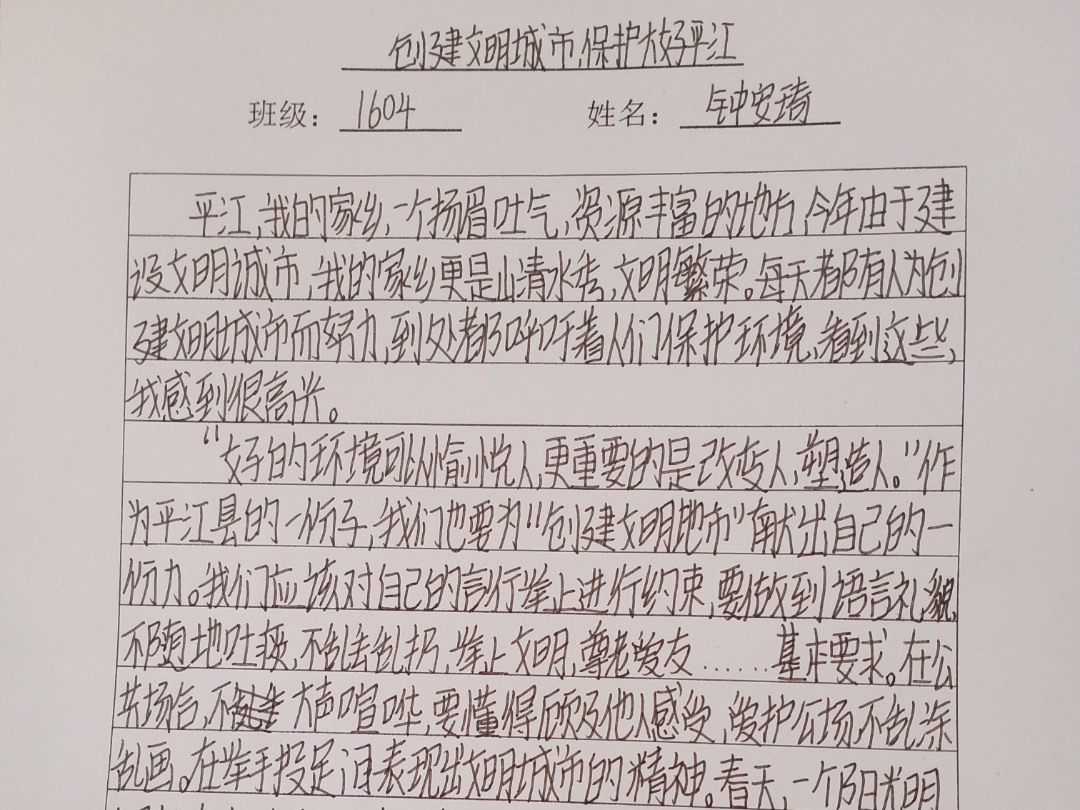 创建文明城市,保护大好平江
班级: 1604 姓名: 钟安琦
平江,我的家乡,一个扬眉吐气,资源丰富的地方,今年由于建
设文明诚市,我的家乡更是山清水秀,文明繁荣。每天都有人为创
建文明城市而努力,到处都呼吁着人们保护环境,看到这些,
我感到很高兴。
“好的环境可以愉悦人,更重要的是改变人,塑造人。”作
为平江县的一份子,我们也要为“创建文明地市”献出自己的一
份力。我们应该对自己的言行举上进行约束,要做到语言礼貌,
不随地吐痰,不乱丢乱扔,举上文明,尊老爱友……基本要求。在公
共场合,不大声喧哗,要懂得顾及他人感受,爱护公场,不乱涂
乱画。在举手投足间表现出文明城市的精神。春天,一个阳光明